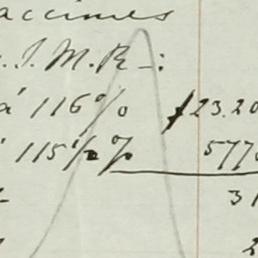 accines
. I. M. R—:
á 116 % f 23.20
á 115 ½ % 577
31
2